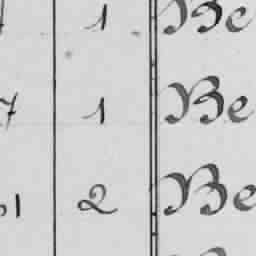 1 Be
7 1 Be
1 2 Be